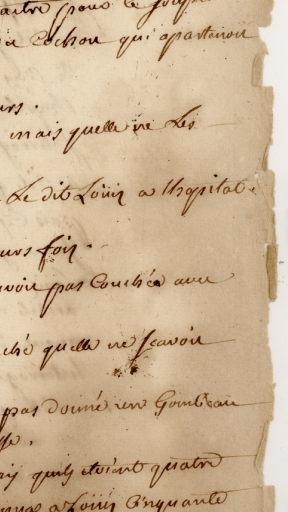 pour le
un Cochon qui apartenoit
urs.
mais quelle ne Les
Le dit Loüis a Lhopital.
urs fois.
avoir pas Couchée avec
ché quelle ne scavoit
pas donné un
quils etoient quatre
a Loüis Cinquante